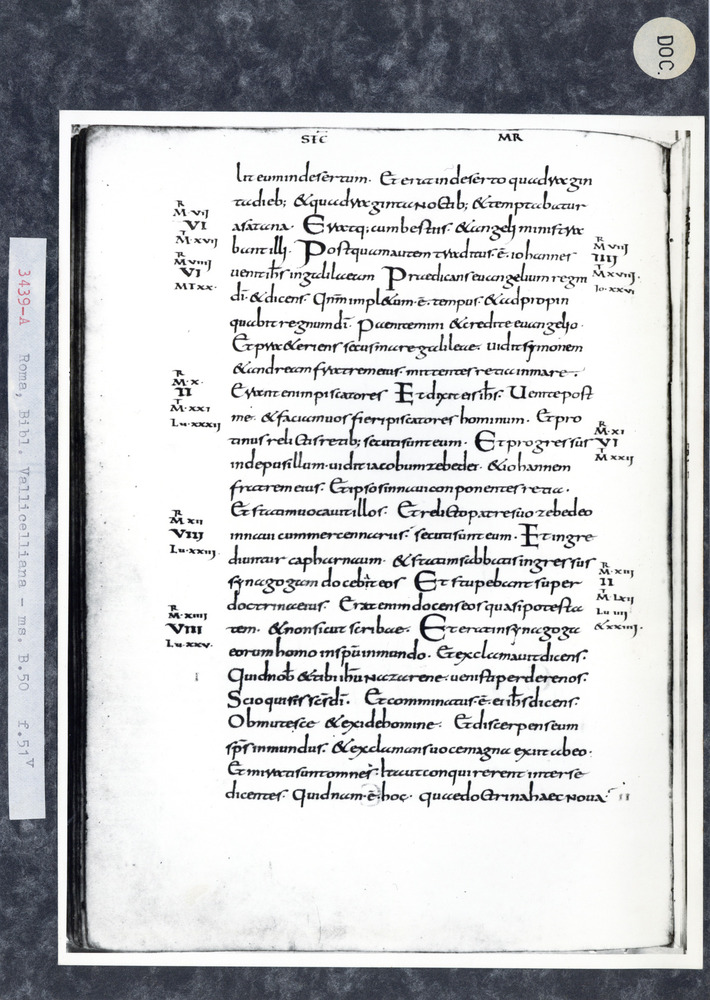 DOC.
SIC MR
lit eum in desertum. Et erat in deserto quadragin
ta dieb; & quadraginta noctib; & temptabatur
a satana. Eratq; cum bestiis. & angeli ministra
bant illi. Postquam autem traditus. ē. iohannes
uenit ih̄s in galilaeam Praedicans euangelium regni
dī. & dicens. Qnm impl&um. ē. tempus. & adpropin
quabit regnum dī. Paenitemini & credite euangelio.
Et praeteriens secus mare galileae. uidit symonem
& andream fratrem eius. mittentes retia in mare.
Erant enim piscatores Et dixit eis ih̄s. Uenite post
me. & faciam uos fieri piscatores hominum. Et pro
tinus relictis retib; secuti sunt eum. Et progressus
inde pusillum. uidit iacobum zebedei. & iohannem
fratrem eius. Et ipsos in naui conponentes retia.
Et statim uocauit illos. Et relicto patre suo zebedeo
in naui cum mercennariis. secuti sunt eum. Et ingre
diuntur capharnaum. & statim sabbatis ingressus
synagogam docebat eos Et stupebant super
doctrina eius. Erat enim docens eos quasi potesta
tem. & non sicut scribae. Et erat in synagoga
eorum homo in spū inmundo. Et exclamauit dicens.
Quid nob & tibi ihū nazarene. uenisti perdere nos.
Scio qui sis sc̄s dī. Et comminatus. ē. ei ih̄s dicens.
Obmutesce & exi de homine. Et discerpens eum
sp̄s inmundus. & exclamans uoce magna exiit ab eo.
Et mirati sunt omnes. Ita ut conquirerent inter se
dicentes. Quidnam. ē. hoc. quae doctrina haec noua.
R
M VIJ
VI
T
M XVIJ
R
M VIIIJ
VI
M I XX
R
M X
II
T
M XXI
Lu XXXIJ
R
M XII
VIII
Lu XXIIJ
R
M XIIIJ
VIII
Lu XXV
I
R
M VIIJ
IIIJ
T
M XVIIJ
Io XXVI
R
M XI
VI
T
M XXIJ
R
M XIIJ
II
T
M LXIJ
Lu IIIJ
& XXIIIJ
II
3439-A Roma, Bibl. Vallicelliana - ms. B.50 f.51v